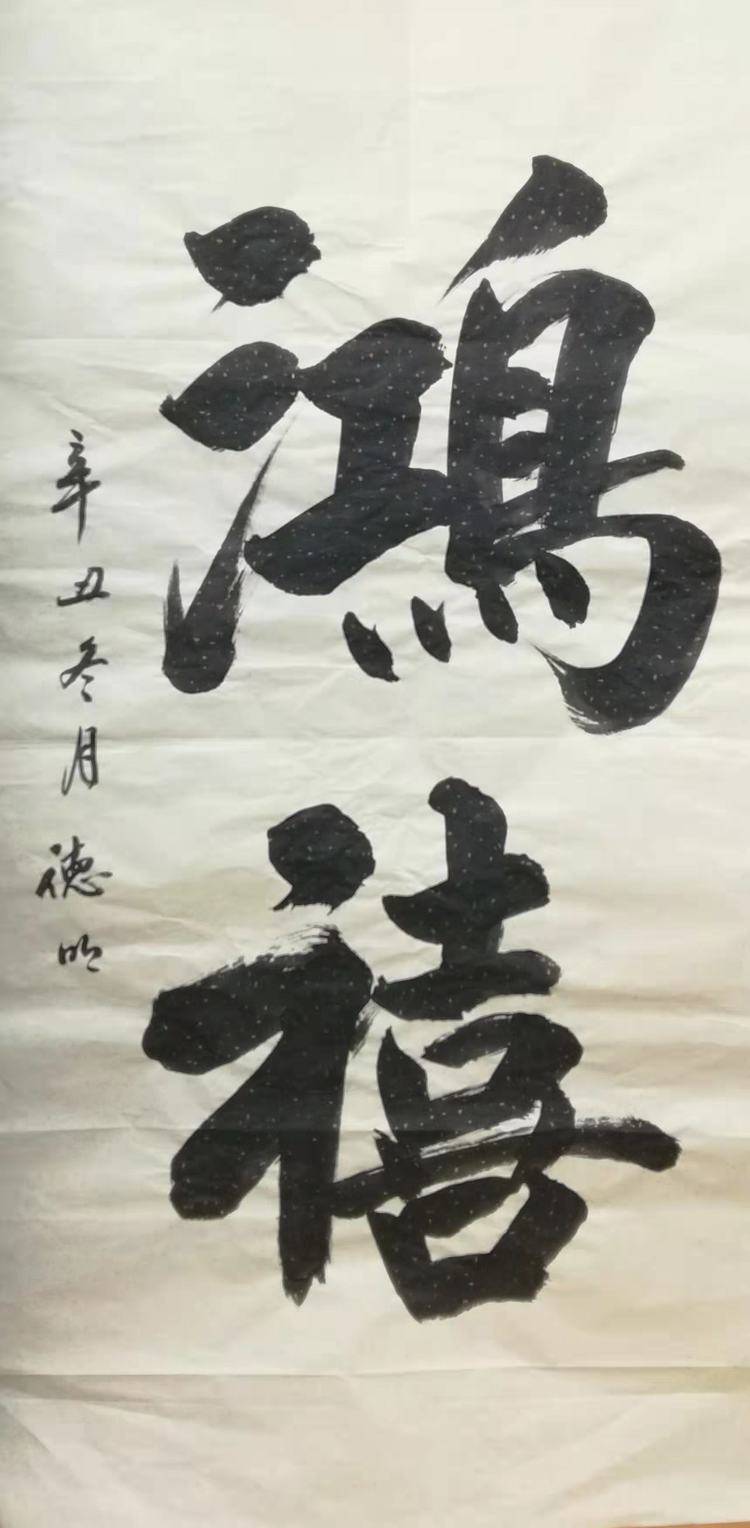 鴻禧
辛丑冬月德明